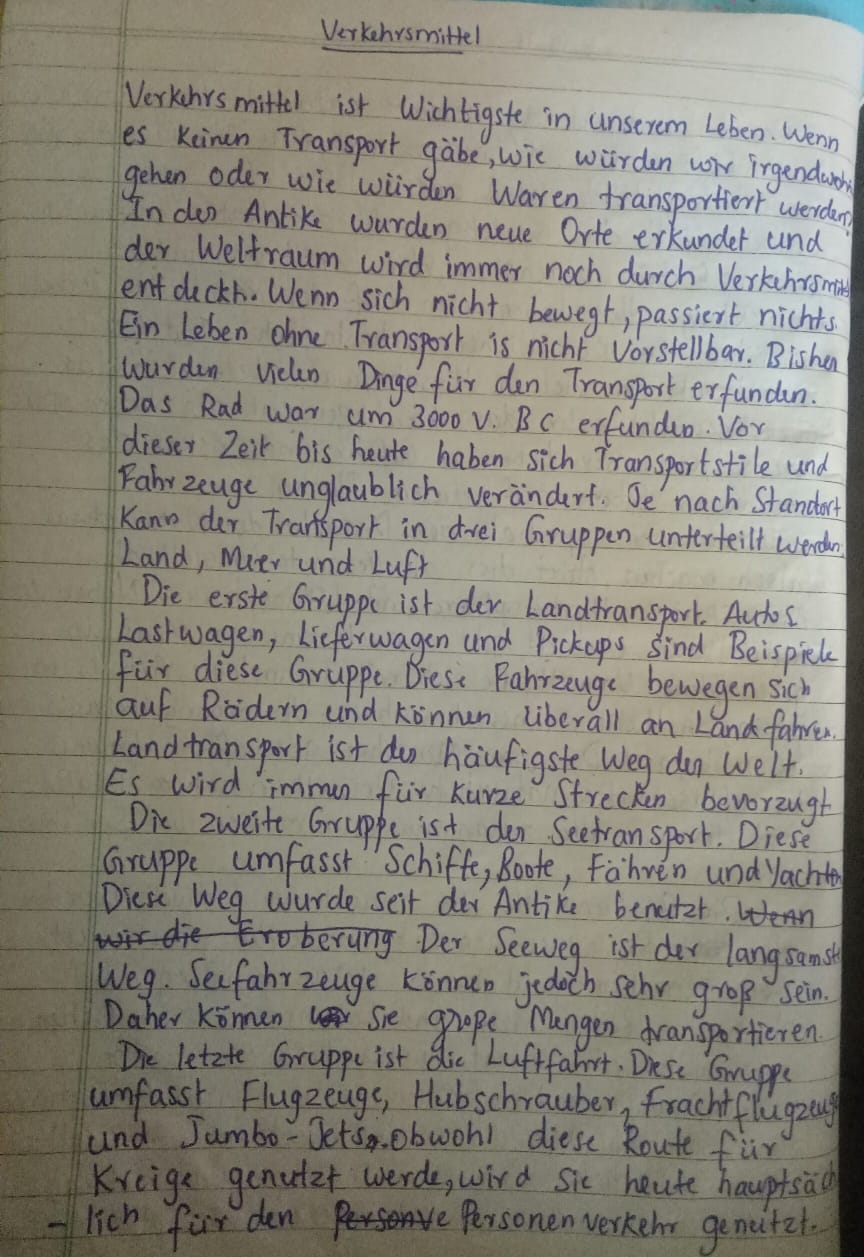 Verkehrsmittel
Verkehrsmittel ist Wichtigste in unserem Leben. Wenn
es keinen Transport gäbe, wie würden wir irgendwohin
gehen oder wie würden Waren transportiert werden?
In der Antike wurden neue Orte erkundet und
der Weltraum wird immer noch durch Verkehrsmittel
entdeckh. Wenn sich nicht bewegt, passiert nichts.
Ein Leben ohne Transport is nicht Vorstellbar. Bisher
wurden vielen Dinge für den Transport erfunden.
Das Rad war um 3000 V. BC erfunden. Vor
dieser Zeit bis heute haben sich Transportstile und
Fahrzeuge unglaublich verändert. Je nach Standort
Kann der Transport in drei Gruppen unterteilt werden
Land, Meer und Luft
Die erste Gruppe ist der Landtransport. Autos
Lastwagen, Lieferwagen und Pickups sind Beispiele
für diese Gruppe. Diese Fahrzeuge bewegen sich
auf Rädern und können überall an Land fahren.
Landtransport ist der häufigste Weg der Welt.
Es wird immer für kurze Strecken bevorzugt
Die zweite Gruppe ist der Seetransport. Diese
Gruppe umfasst Schiffe, Boote, Fähren und Yachten
Diese Weg wurde seit der Antike benutzt. Wenn
wir die Eroberung Der Seeweg ist der langsamste
Weg. Seefahrzeuge können jedoch sehr groß sein.
Daher können sie große Mengen transportieren.
Die letzte Gruppe ist die Luftfahrt. Diese Gruppe
umfasst Flugzeuge, Hubschrauber, Frachtflugzeug
und Jumbo-Jets. obwohl diese Route für
Kreige genutzt werde, wird sie heute hauptsäch
-lich für den Personve Personenverkehr genutzt.